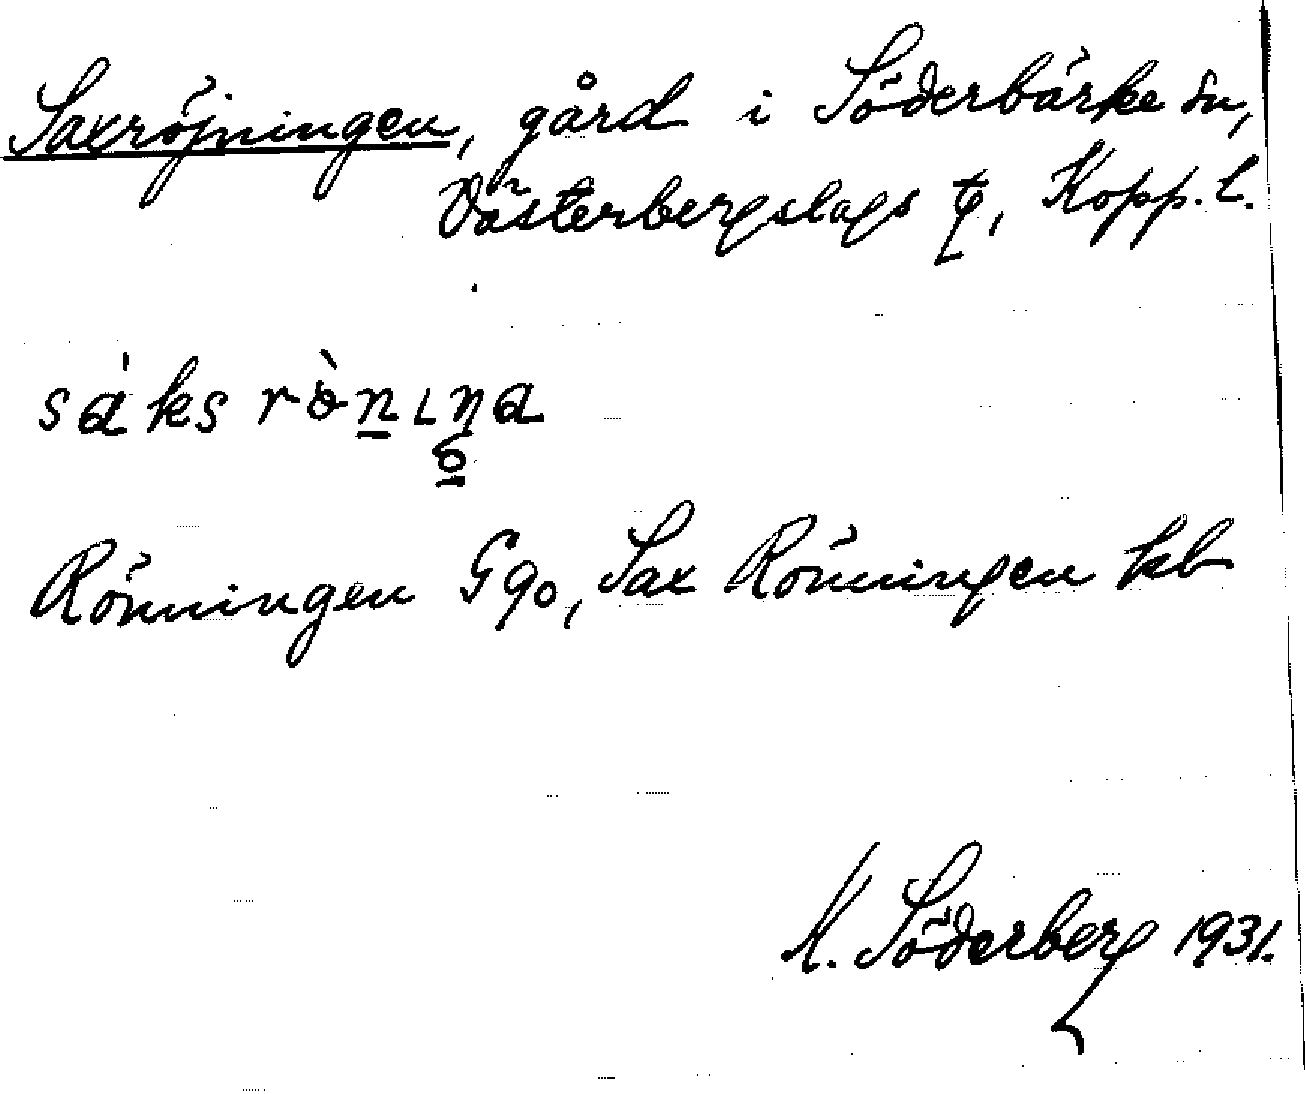 Saxröjningen, gård i Söderbärke sn,
Västerbergslags tg, Kopp. l.
Rönningen Gqo, Sax Rönningen kb
K. Söderberg 1931.